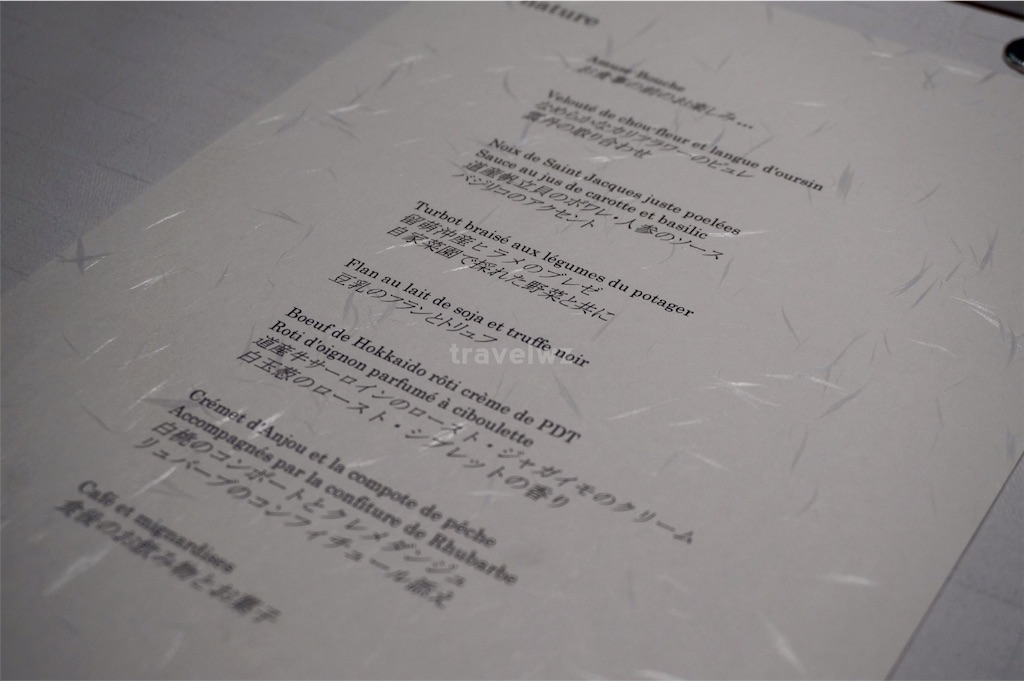 nature
Amuse Bouche
お食事の前のお楽しみ…
Velouté de chou-fleur et langue d'oursin
なめらかなカリフラワーのピュレ
雲丹の取り合わせ
Noix de Saint Jacques juste poelées
Sauce au jus de carotte et basilic
道産帆立貝のポワレ・人参のソース
バジリコのアクセント
Turbot braisé aux légumes du potager
留萌沖産ヒラメのブレゼ
自家菜園で採れた野菜と共に
Flan au lait de soja et truffe noir
豆乳のフランとトリュフ
Boeuf de Hokkaido rôti crème de PDT
Roti d'oignon parfumé à ciboulette
道産牛サーロインのロースト・ジャガイモのクリーム
白玉葱のロースト・シブレットの香り
Crémet d'Anjou et la compote de pêche
Accompagnés par la confiture de Rhubarbe
白桃のコンポートとクレメダンジュ
リュバーブのコンフィチュール添え
Café et mignardises
食後のお飲み物とお菓子
travelwz